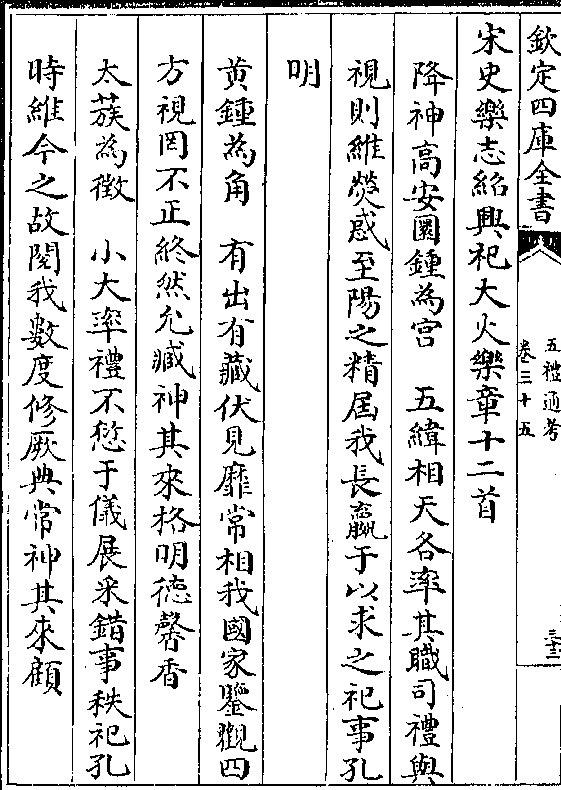 欽定四庫全書
五禮通考
卷三十五
三三
宋史樂志紹興祀大火樂章十二首
降神高安圜鍾為宮　五緯相天各率其職司禮與
視則維熒惑至陽之精屆我長嬴于以求之祀事孔
明
黄鍾為角　有出有藏伏見靡常相我國家鑒觀四
方視罔不正終然允臧神其來格明德馨香
太蔟為徵　小大率禮不愆于儀展采錯事秩祀孔
時維今之故閱我數度修厥典常神其來顧